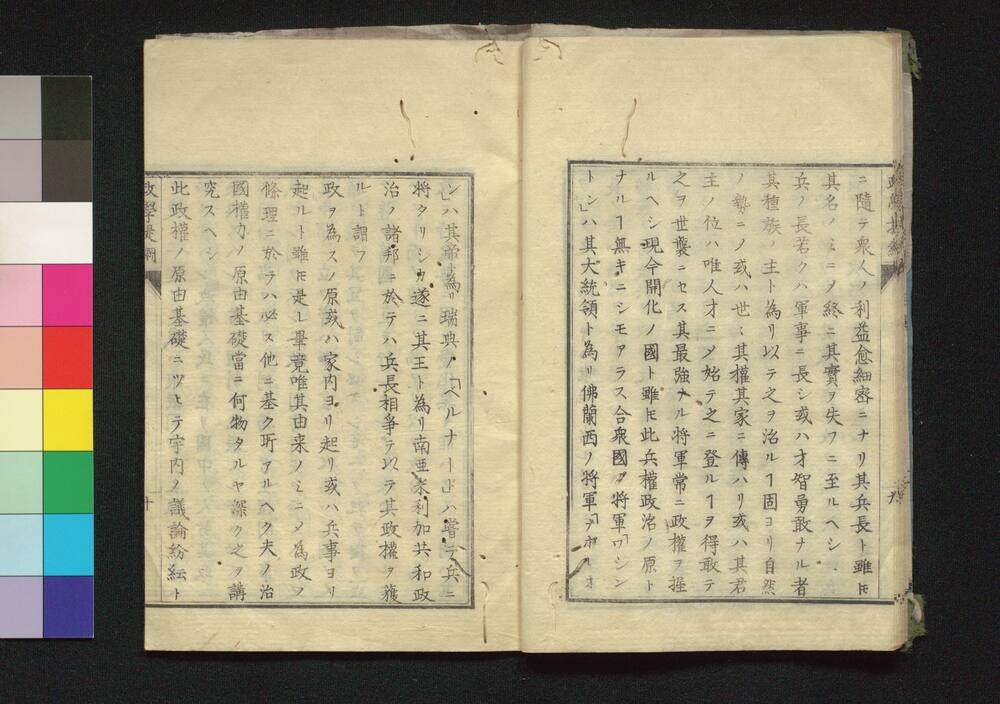 ニ隨テ衆人ノ利益愈細密ニナリ其兵長ト雖𪜈
其名ノミニ乄終ニ其實ヲ失フニ至ルヘシ、
兵ノ長若クハ軍事ニ長シ或ハ才智勇敢ナル者
其種族ノ主ト為リ以テ之ヲ治ルヿ固ヨリ自然
ノ勢ニノ或ハ世〻其權其家ニ傳ハリ或ハ其君
主ノ位ハ唯人才ニ乄始テ之ニ登ルヿヲ得敢テ
之ヲ世襲ニセス其最強ナル将軍常ニ政權ヲ握
ルヘシ現今開化ノ國ト雖𪜈此兵權政治ノ原ト
ナルヿ無キニシモアラス合衆國ノ将軍「ワシン
トン」ハ其大統領ト為リ佛蘭西ノ将軍「ナポレオ
ン」ハ其帝ト為リ瑞典ノ「ベルナードハ嘗テ兵ニ
将タリシカ遂ニ其王ト為リ南亜米利加共和政
治ノ諸邦ニ於テハ兵長相爭テ以テ其政權ヲ獲
ルト謂フ
政ヲ為スノ原或ハ家内ヨリ起リ或ハ兵事ヨリ
起ルト雖𪜈是レ畢竟唯其由来ノミニ乄為政ノ
條理ニ於テハ必ス他ニ基ク所アルヘク夫ノ治
國權力ノ原由基礎當ニ何物タルヤ深ク之ヲ講
究スヘシ
此政權ノ原由基礎ニツヒテ宇内ノ議論紛紜ト
政學提綱
十